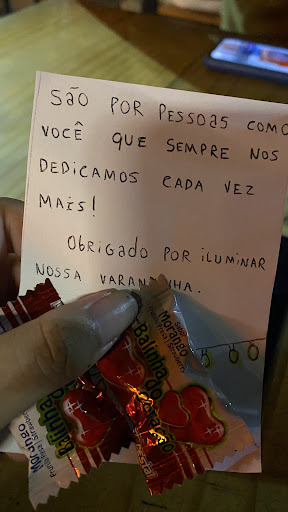 SÃO POR PESSOAS COMO
VOCÊ QUE SEMPRE NOS
DEDICAMOS CADA VEZ
MAIS!
OBRIGADO POR ILUMINAR
NOSSA VARANDINHA.
Sabor
Morango
Balinha do
Coração
Morango